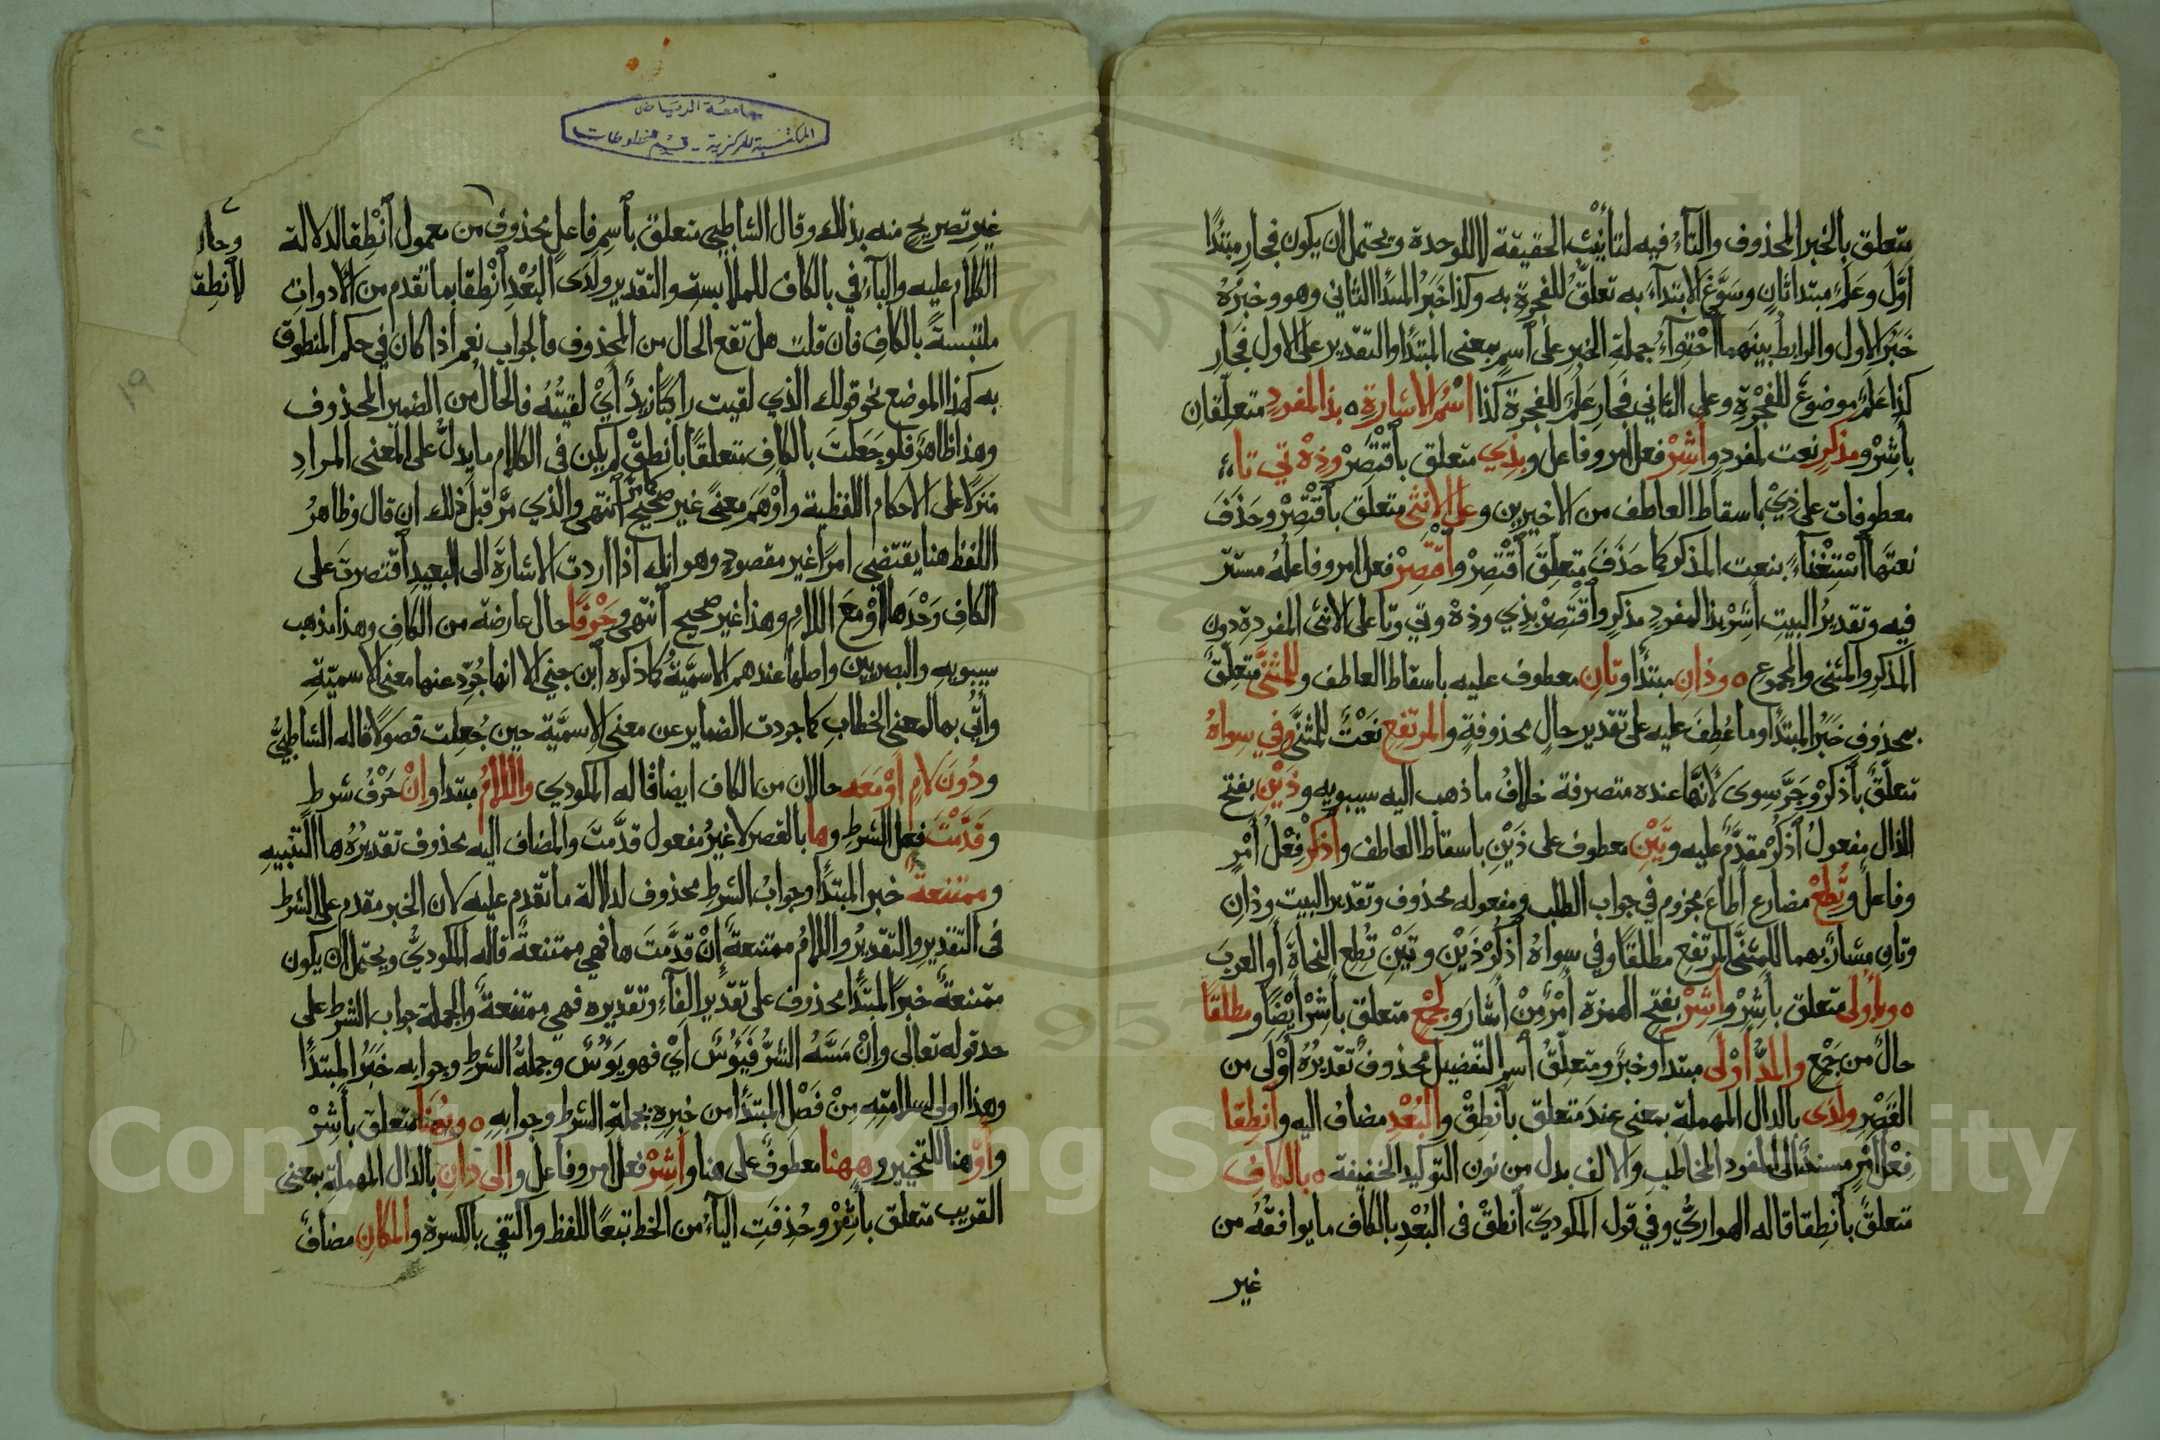 متعلق بالخبر المحذوف والتاء فيه لتأنيث الحقيقة لا للوحدة ويحتمل ان يكون فجار مبتدأ
اول وعلم مبتدا ثان وسوغ الابتداء به تعلق للفجرة به وكذا خبر المبتدا الثاني وهو وخبره
خبر الاول والرابط بينهما احتواء جملة الخبر على اسم بمعنى المبتدا والتقدير على الاول فجار
كذا علم موضوع للفجرة وعلى الثاني فجار علم للفجرة كذا اسم الاشارة ٥ بذا لمفرد متعلقان
بأشر ومذكر نعت لمفرد وأشر فعل امر وفاعل وبذي متعلق باقتصر وذه تي تا
معطوفات على ذي باسقاط العاطف من الاخيرين وعلى الانثى متعلق باقتصر وحذف
نعتها استغناء بنعت المذكر كما حذف متعلق اقتصر واقتصر فعل امر وفاعله مستتر
فيه وتقدير البيت اشر بذا لمفرد مذكر واقتصر بذي وذه وتي وتا على الانثى المفردة دون
المذكر والمثنى والمجموع ٥ وذان مبتدا وتان معطوف عليه باسقاط العاطف وللمثنى متعلق
بمحذوف خبر المبتدا وما عطف عليه على تقدير حال محذوفة والمرتفع نعت للمثنى وفي سواه
متعلق باذكر وجر سوى لأنها عنده متصرفة خلاف ما ذهب اليه سيبويه وذين بفتح
الذال مفعول اذكر مقدم عليه وتين معطوف على ذين باسقاط العاطف واذكر فعل أمر
وفاعل وتطع مضارع أطاع مجزوم في جواب الطلب ومفعوله محذوف وتقدير البيت وذان
وتان مشار بهما للمثنى المرتفع مطلقا وفي سواه اذكر ذين وتين تطع النحاة أو العرب
٥ وبأولى متعلق بأشر وأشر بفتح الهمزة أمر من أشار ولجمع متعلق بأشر أيضا ومطلقا
حال من جمع والمد أولى مبتدا وخبر ومتعلق اسم التفضيل محذوف تقديره أولى من
القصر ولدى بالدال المهملة بمعنى عند متعلق بانطق والبعد مضاف اليه وانطقا
فعل أمر مسند الى المفرد المخاطب والالف بدل من نون التوكيد الخفيفة ٥ بالكاف
متعلق بانطقا قاله الهواري وفي قول المكودي انطق في البعد بالكاف ما يوافقه من
غير
جامعة الرياض
المكتبة المركزية - قسم المخطوطات
غير تصريح منه بذلك وقال الشاطبي متعلق باسم فاعل محذوف من معمول انطقا لدلالة
الكلام عليه والباء في بالكاف للملابسة والتقدير ولدى البعد انطقا بما تقدم من الادوات
ملتبسة بالكاف فان قلت هل تقع الحال من المحذوف فالجواب نعم اذا كان في حكم المنطوق
به كهذا الموضع نحو قولك الذي لقيت راكبا زيد أي لقيته فالحال من الضمير المحذوف
وهذا ظاهر فلو جعلت بالكاف متعلقا بانطق لم يكن في الكلام ما يدل على المعنى المراد
منزلا على الاحكام اللفظية وأوهم معنى غير صحيح كما مر انتهى والذي مر قبل ذلك ان قال وظاهر
اللفظ هنا يقتضي امرا غير مقصود وهو انك اذا اردت الاشارة الى البعيد اقتصرت على
الكاف وحدها أو مع اللام وهذا غير صحيح انتهى وحرفا حال عارضة من الكاف وهذا مذهب
سيبويه والبصريين واصلها عندهم الاسمية كما ذكره ابن جني الا انها جرد عنها معنى الاسمية
وأتي بها لمعنى الخطاب كما جردت الضماير عن معنى الاسمية حين جعلت فصولا قاله الشاطبي
ودون لام أو معه حالان من الكاف ايضا قاله المكودي واللام مبتدا وإن حرف شرط
وقدمت فعل الشرط وها بالقصر لا غير مفعول قدمت والمضاف اليه محذوف تقديره ها التنبيه
وممتنعة خبر المبتدا وجواب الشرط محذوف لدلالة ما تقدم عليه لان الخبر مقدم على الشرط
في التقدير والتقدير واللام ممتنعة إن قدمت ها فهي ممتنعة قاله المكودي ويحتمل ان يكون
ممتنعة خبرا لمبتدا محذوف على تقدير الفاء وتقديره فهي ممتنعة والجملة جواب الشرط على
حد قوله تعالى وإن مسه الشر فيؤس أي فهو يؤس وجملة الشرط وجوابه خبر المبتدا
وهذا اولى لسلامته من فصل المبتدا من خبره بجملة الشرط وجوابه ٥ وبهنا متعلق بأشر
وأو هنا للتخيير وههنا معطوف على هنا وأشر فعل امر وفاعل والى دان بالدال المهملة بمعنى
القريب متعلق بأشر وحذفت الياء من الخط تبعا للفظ واكتفي بالكسرة والمكان مضاف
وحاء
لانطقا
١٩
Copyright © King Saud University
1957